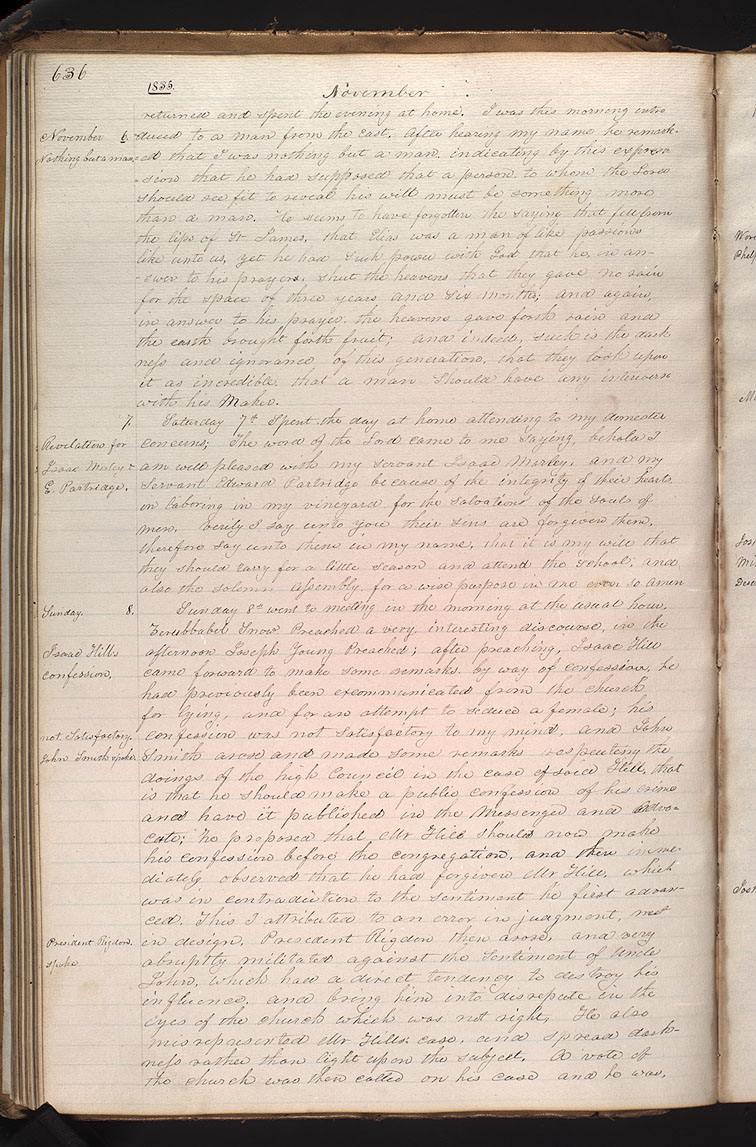 636
1835.
November
returned and spent the evening at home. I was this morning intro
November 6. duced to a man from the east. After hearing my name he remark-
Nothing but a man ed that I was nothing but a man, indicating by this expres-
-sion that he had supposed that a person to whom the Lord
should see fit to reveal his will must be something more
than a man. He seems to have forgotten the saying that fell from
the lips of St James, that Elias was a man of like passions
like unto us, yet he had such power with God that he, in an-
swer to his prayers, shut the heavens that they gave no rain
for the space of three years and six months; and again,
in answer to his prayer, the heavens gave forth rain and
the earth brought forth fruit; and indeed, such is the dark
ness and ignorance of this generation, that they look upon
it as incredible that a man should have any intercourse
with his Maker.
7. Saturday 7th Spent the day at home attending to my domestic
Revelation for concerns; The word of the Lord came to me saying, behold I
Isaac Morley & am well pleased with my servant Isaac Morley, and my
E. Partridge. servant Edward Partridge because of the integrity of their hearts
in laboring in my vineyard for the salvation of the souls of
men. Verily I say unto you their sins are forgiven them,
therefore say unto them in my name, that it is my will that
they should tarry for a little season and attend the school, and
also the solemn assembly for a wise purpose in me even so amen
Sunday. 8. Sunday 8th went to meeting in the morning at the usual hour.
Zerubbabel Snow Preached a very interesting discourse, in the
Isaac Hill's afternoon Joseph Young Preached; after preaching, Isaac Hill
confession, came forward to make some remarks by way of confession, he
had previously been excommunicated from the church
for lying, and for an attempt to seduce a female; his
not Satisfactory. confession was not satisfactory to my mind, and John
John Smith spoke Smith arose and made some remarks respecting the
doings of the high Council in the case of said Hill, that
is that he should make a public confession of his crime
and have it published in the Messenger and Advo-
cate; he proposed that Mr Hill should now make
his confession before the congregation, and then imme
diately observed that he had forgiven Mr Hill, which
was in contradiction to the sentiment he first advan-
ced. This I attributed to an error in judgment, not
President Rigdon in design. President Rigdon then arose, and very
spoke abruptly militated against the sentiment of Uncle
John, which had a direct tendency to destroy his
influence, and bring him into disrepute in the
eyes of the church which was not right, He also
misrepresented Mr Hills case, and spread dark-
ness rather than light upon the subject. A vote of
the church was then called on his case and he was,